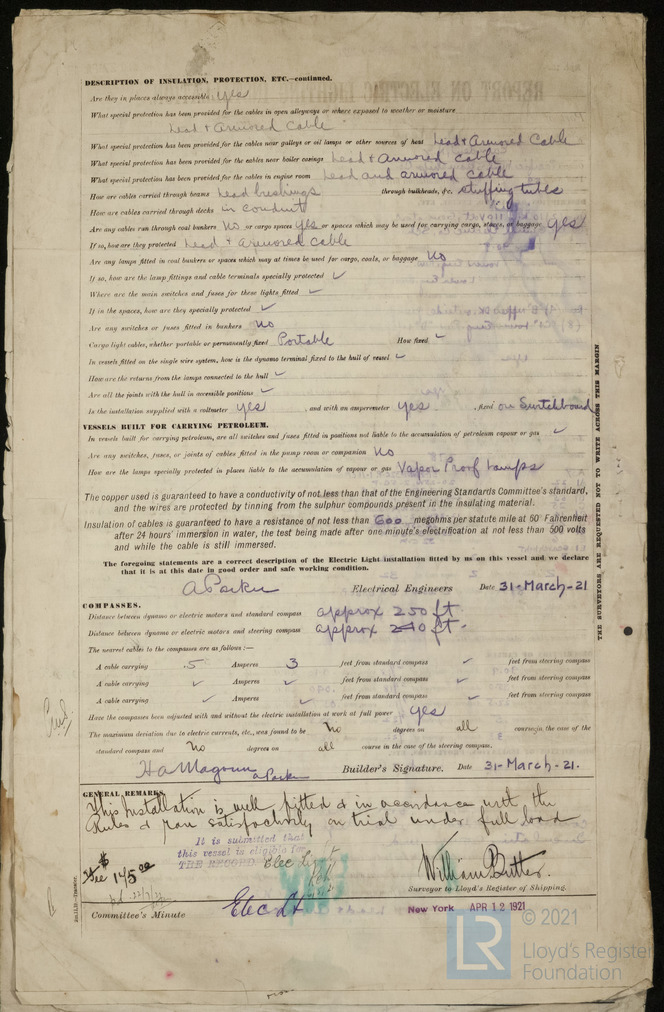 DESCRIPTION OF INSULATION, PROTECTION, ETC.—continued.
Are they in places always accessible yes
What special protection has been provided for the cables in open alleyways or where exposed to weather or moisture
Lead & armored cable
What special protection has been provided for the cables near galleys or oil lamps or other sources of heat Lead & Armored Cable
What special protection has been provided for the cables near boiler casings Lead & armored cable
What special protection has been provided for the cables in engine room Lead and armored cable
How are cables carried through beams Lead bushings through bulkheads, &c. stuffing tubes
How are cables carried through decks in conduit
Are any cables run through coal bunkers No or cargo spaces yes or spaces which may be used for carrying cargo, stores, or baggage yes
If so, how are they protected Lead & armored cable
Are any lamps fitted in coal bunkers or spaces which may at times be used for cargo, coals, or baggage No
If so, how are the lamp fittings and cable terminals specially protected ✓
Where are the main switches and fuses for these lights fitted ✓
If in the spaces, how are they specially protected ✓
Are any switches or fuses fitted in bunkers No
Cargo light cables, whether portable or permanently fixed Portable How fixed ✓
In vessels fitted on the single wire system, how is the dynamo terminal fixed to the hull of vessel ✓
How are the returns from the lamps connected to the hull ✓
Are all the joints with the hull in accessible positions ✓
Is the installation supplied with a voltmeter yes , and with an amperemeter yes , fixed on Switchboard
VESSELS BUILT FOR CARRYING PETROLEUM.
In vessels built for carrying petroleum, are all switches and fuses fitted in positions not liable to the accumulation of petroleum vapour or gas ✓
Are any switches, fuses, or joints of cables fitted in the pump room or companion No
How are the lamps specially protected in places liable to the accumulation of vapour or gas Vapor Proof Lamps
The copper used is guaranteed to have a conductivity of not less than that of the Engineering Standards Committee's standard,
and the wires are protected by tinning from the sulphur compounds present in the insulating material.
Insulation of cables is guaranteed to have a resistance of not less than 600 megohms per statute mile at 60° Fahrenheit
after 24 hours' immersion in water, the test being made after one minute's electrification at not less than 500 volts
and while the cable is still immersed.
The foregoing statements are a correct description of the Electric Light installation fitted by us on this vessel and we declare
that it is at this date in good order and safe working condition.
A Parker Electrical Engineers Date 31-March-21
COMPASSES.
Distance between dynamo or electric motors and standard compass approx 250 ft
Distance between dynamo or electric motors and steering compass approx 240 ft.
The nearest cables to the compasses are as follows:—
A cable carrying .5 Amperes 3 feet from standard compass ✓ feet from steering compass
A cable carrying ✓ Amperes ✓ feet from standard compass ✓ feet from steering compass
A cable carrying ✓ Amperes ✓ feet from standard compass ✓ feet from steering compass
Have the compasses been adjusted with and without the electric installation at work at full power yes
The maximum deviation due to electric currents, etc., was found to be No degrees on all course in the case of the
standard compass and No degrees on all course in the case of the steering compass.
H A Magoun A Parker Builder's Signature. Date 31-March-21.
GENERAL REMARKS.
This Installation is well fitted & in accordance with the
Rules & Ran satisfactorily on trial under full load
It is submitted that
this vessel is eligible for
THE RECORD Elec Light
Fee $ 145.00
William Butter
Surveyor to Lloyd's Register of Shipping.
Committee's Minute Elec Lt New York APR 12 1921
THE SURVEYORS ARE REQUESTED NOT TO WRITE ACROSS THIS MARGIN
LR
© 2021
Lloyd's Register
Foundation